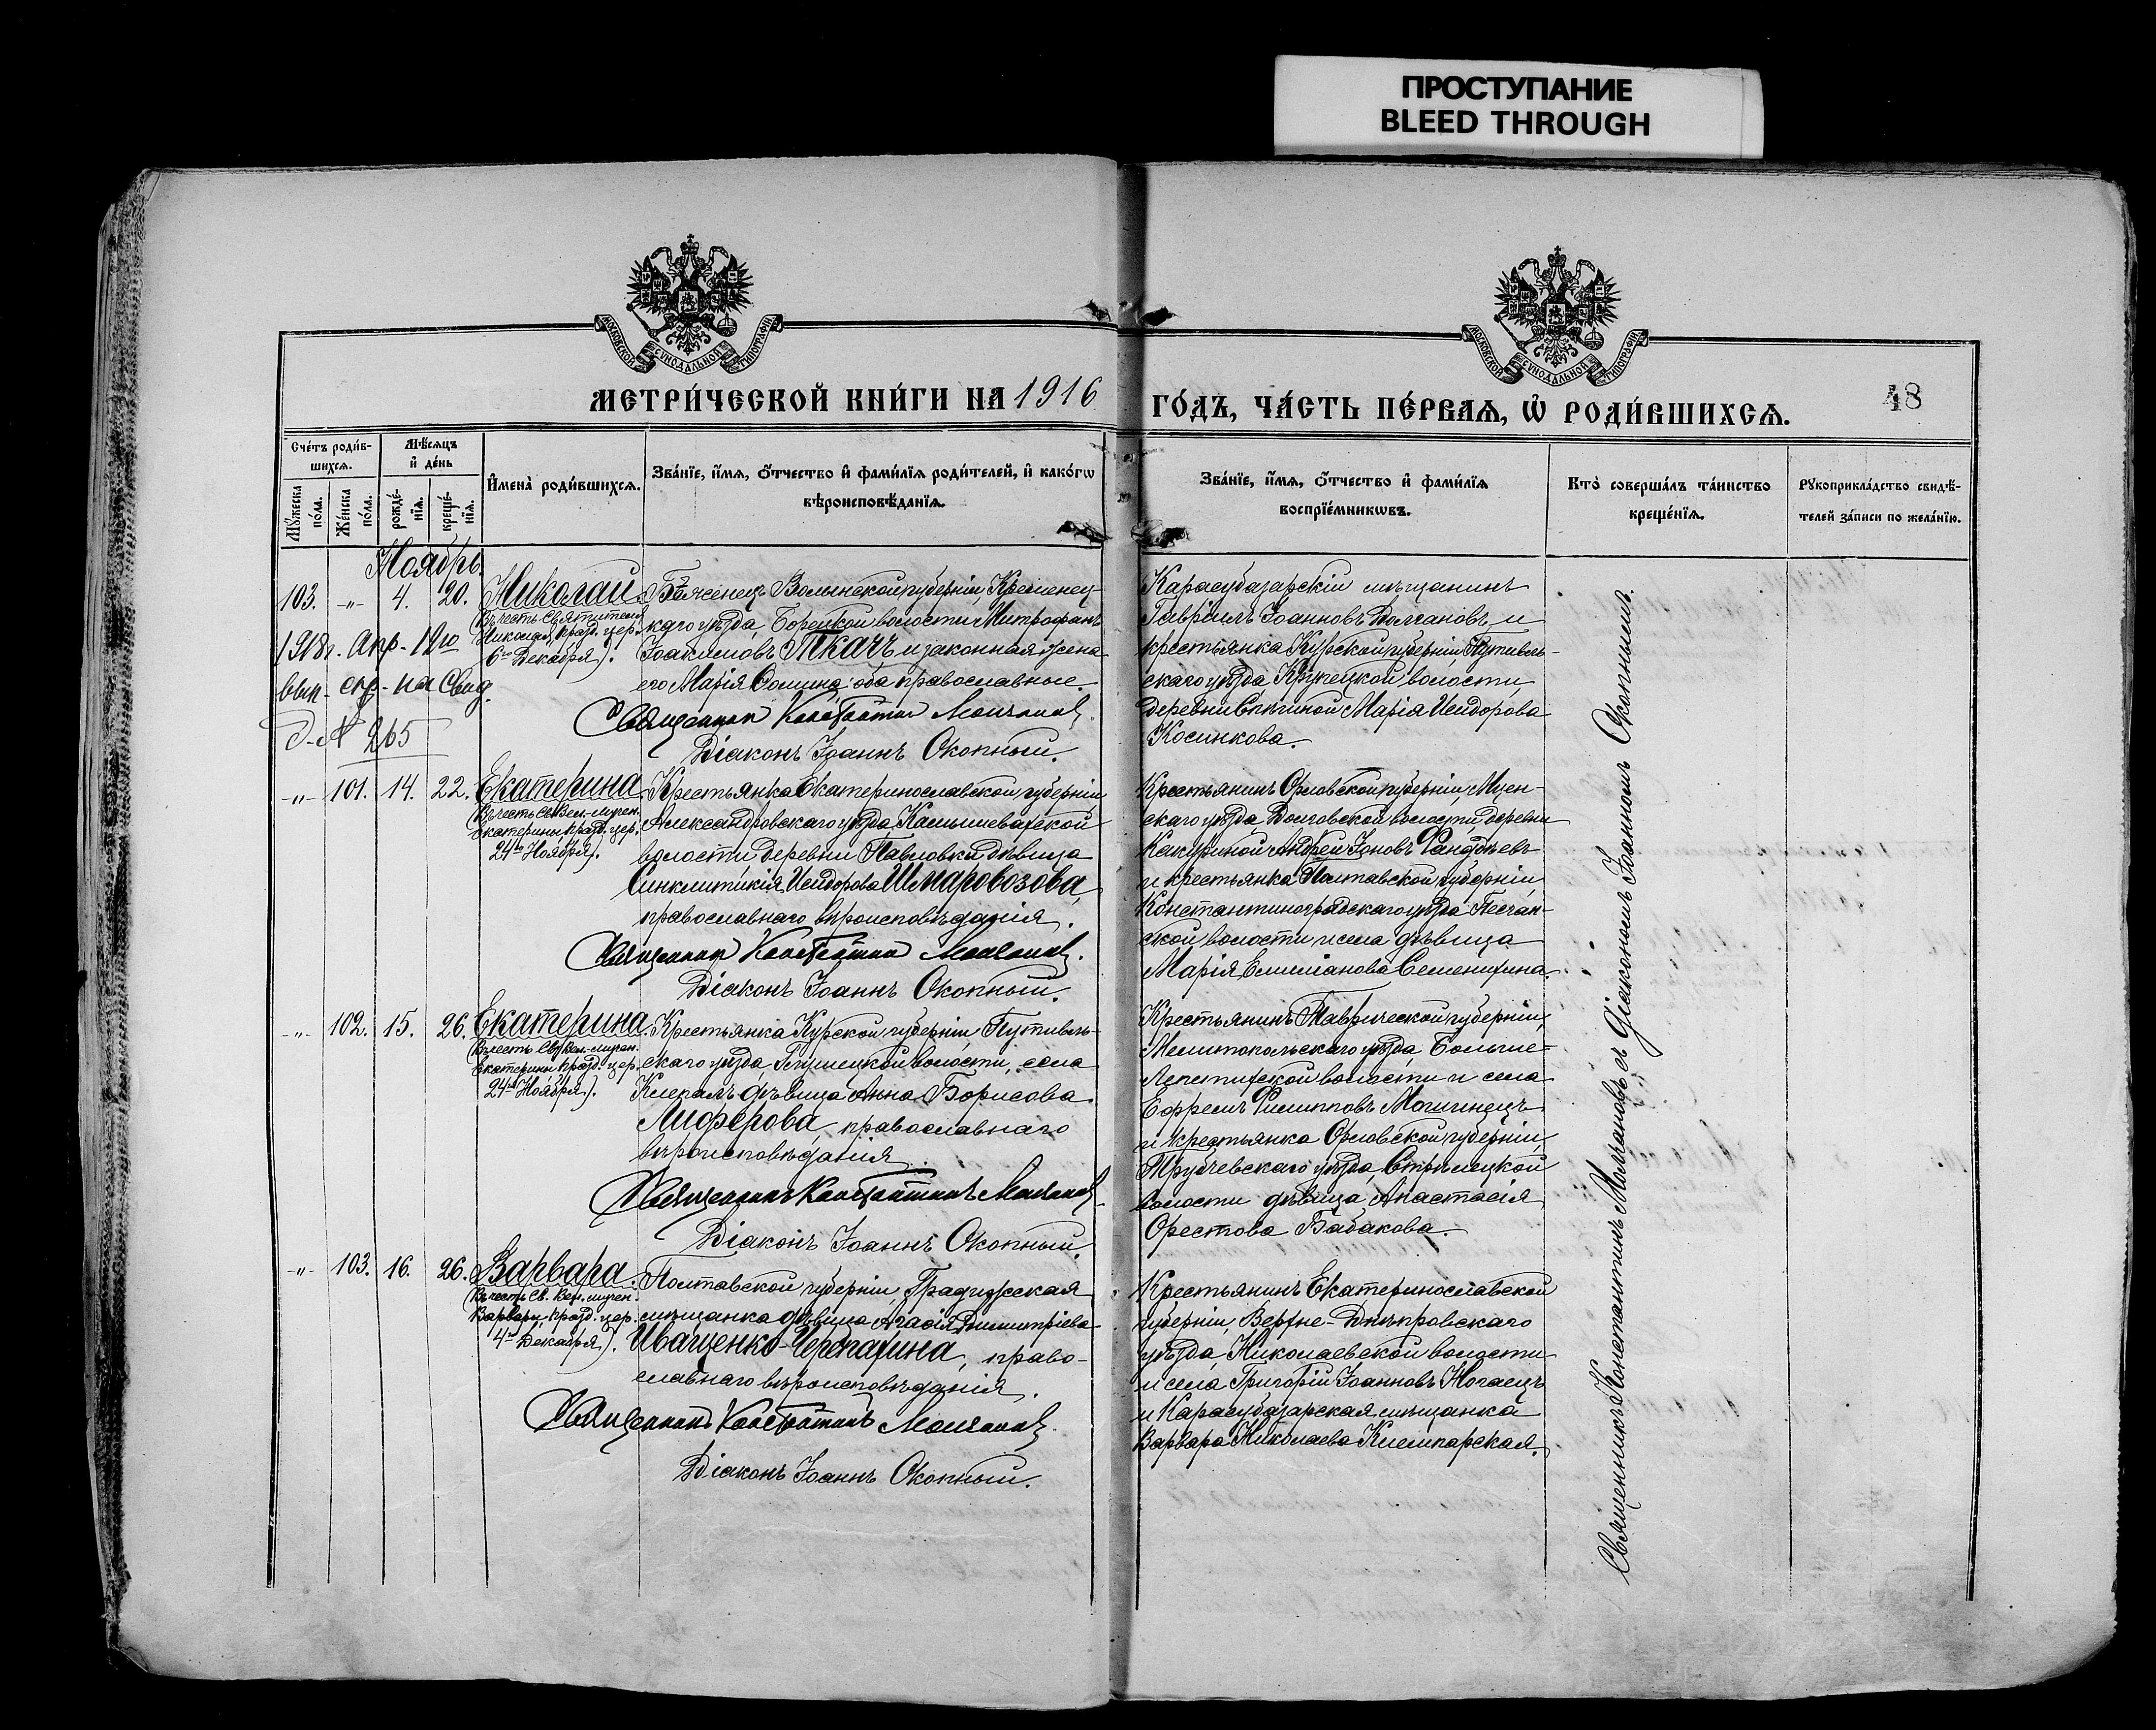 ПРОСТУПАНИЕ
BLEED THROUGH
МОСКОВСКОЙ СѴНОДАЛЬНОЙ ТИПОГРАФІИ
МОСКОВСКОЙ СѴНОДАЛЬНОЙ ТИПОГРАФІИ
МЕТРИ́ЧЕСКОЙ КНИ́ГИ НА 1916
ГО́ДЪ, ЧА́СТЬ ПЕ́РВАѦ, Ѡ҆ РОДИ́ВШИХСѦ.
48
Сче́тъ роди́в-
шихсѧ.
Мѣ́сѧцъ
и҆ де́нь
Мꙋ́жеска по́ла.
Же́нска по́ла.
рожде́-
нїѧ.
креще́-
нїѧ.
И҆мена̀ роди́вшихсѧ.
Зва́нїе, и҆́мѧ, ѻ҆́тчество и҆ фами́лїѧ роди́телей, и҆ како́гѡ
вѣроисповѣ́данїѧ.
Зва́нїе, и҆́мѧ, ѻ҆́тчество и҆ фами́лїѧ
воспрїе́мникѡвъ.
Кто̀ соверша́лъ та́инство
креще́нїѧ.
Рꙋкоприкла́дство свидѣ́-
телей за́писи по жела́нїю.
Ноябрь.
103. -"- 4. 20. Николай
(Въ честь Святителя
Николая, празд. цер.
6го Декабря).
1918г. Апр. 12го
вып. на Свид.
№ 265
Бѣженецъ Волынской губерніи, Кременец-
каго уѣзда, Борецкой волости Митрофанъ
Іоакимовъ Ткачъ и законная жена
его Марія Ѳомина, оба православные.
Священник Константин Молчанов.
Діаконъ Іоаннъ Окопный.
Карасубазарскій мѣщанинъ
Гавріилъ Іоанновъ Долгановъ и
крестьянка Курской губерніи, Путивль-
скаго уѣзда, волости,
деревни Марія Исидорова
Косинкова.
-"- 101. 14. 22. Екатерина
(Въ честь Св. Вел.-мучен.
Екатерины, празд. цер.
24го Ноября).
Крестьянка Екатеринославской губерніи,
Александровскаго уѣзда, Камышевахской
волости, деревни Павловки, дѣвица
Синклитикія Исидорова Шмаровозова,
православнаго вѣроисповѣданія.
Священник Константин Молчанов.
Діаконъ Іоаннъ Окопный.
Крестьянинъ Орловской губерніи, Мцен-
скаго уѣзда, Долговской волости, деревни
Андрей Іоновъ
и крестьянка Полтавской губерніи,
Константиноградскаго уѣзда, Песчан-
ской волости и села дѣвица
Марія Емиліанова Семенихина.
-"- 102. 15. 26. Екатерина
(Въ честь Св. Вел.-мучен.
Екатерины, празд. цер.
24го Ноября).
Крестьянка Курской губерніи, Путивль-
скаго уѣзда, волости, села
дѣвица Анна Борисова
Лиферова, православнаго
вѣроисповѣданія.
Священникъ Константинъ Молчанов
Діаконъ Іоаннъ Окопный.
Крестьянинъ Таврической губерніи,
Мелитопольскаго уѣзда, Больше-
Лепетихской волости и села
Ефремъ Филипповъ
и крестьянка Орловской губерніи,
Трубчевскаго уѣзда, Стрѣлецкой
волости дѣвица Анастасія
Орестова Бабакова.
-"- 103. 16. 26. Варвара.
(Въ честь Св. Вел. мучен.
Варвары, празд. цер.
4го Декабря).
Полтавской губерніи, Градижская
мѣщанка дѣвица Агаѳія Димитріева
Иващенко-Черепахина, право-
славнаго вѣроисповѣданія.
Священникъ Константинъ Молчанов.
Діаконъ Іоаннъ Окопный.
Крестьянинъ Екатеринославской
губерніи, Верхне-Днѣпровскаго
уѣзда, Николаевской волости
и села Григорій Іоанновъ Ногаецъ
и Карасубазарская мѣщанка
Варвара Николаева
Священникъ Константинъ Молчановъ съ діакономъ Іоанномъ Окопнымъ.